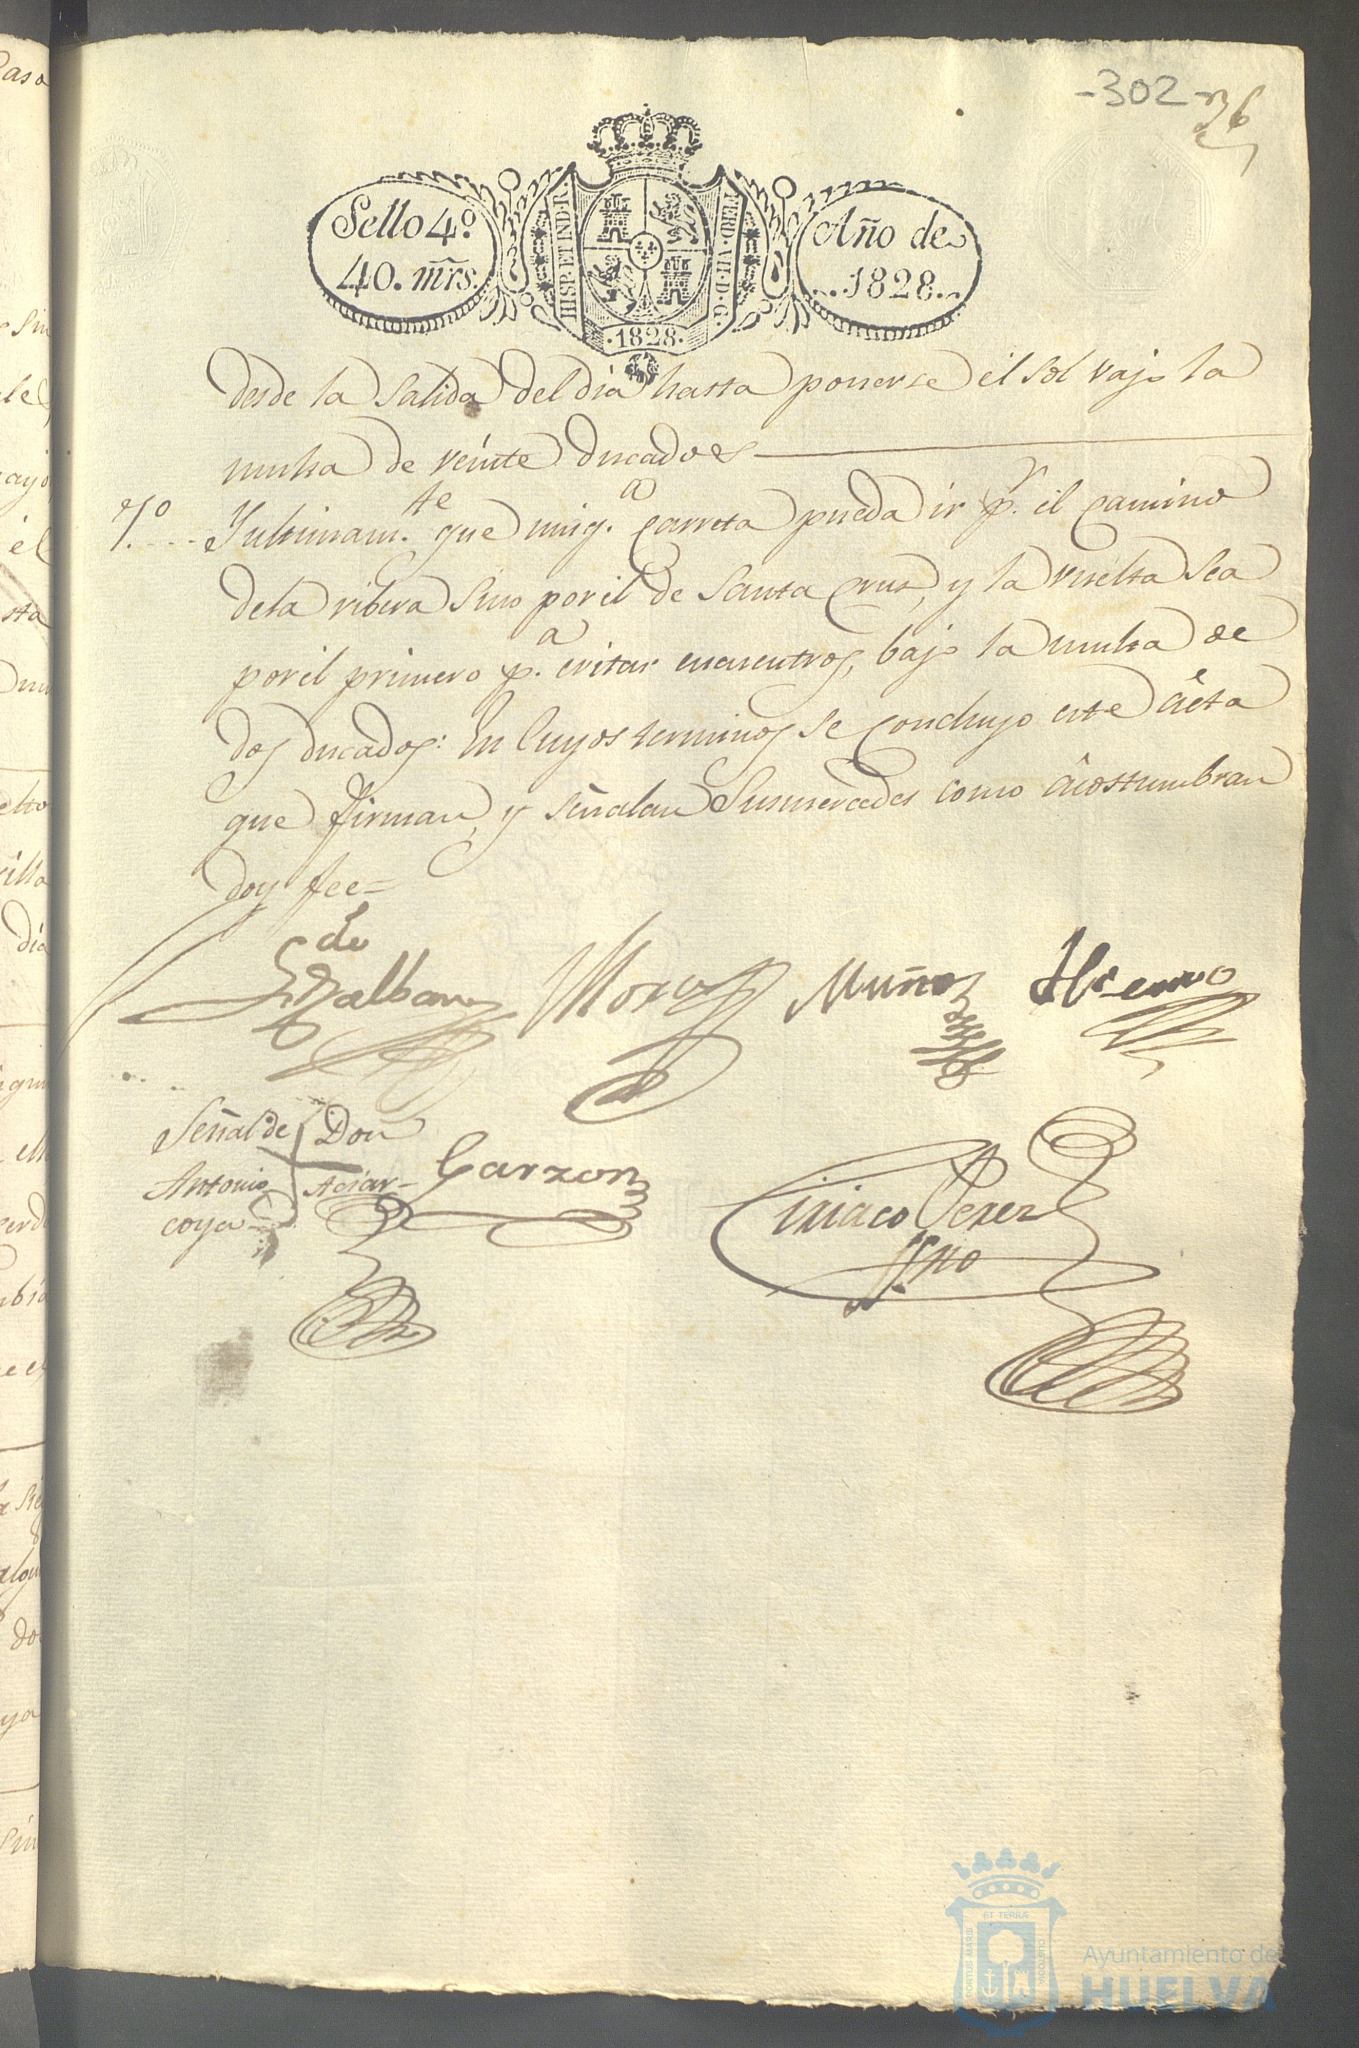 -302-
36
Sello 4º
40. mrs.
HISP. ET IND. R.
FERD. VII. D. G.
·1828·
Año de
1828.
desde la Salida del dia hasta ponerse el sol vajo la
multa de veinte ducados
7º.... Yultimamte. que ninga. Carreta pueda ir pr. el Camino
dela ribera sino por el de Santa Cruz, y la vuelta sea
por el primero pa. evitar encuentros, bajo la multa de
dos ducados: En Cuyos terminos se Concluyo este ácta
que firman, y señalan Susmercedes como ácostumbran
doy fee=
Galban Mora Muñoz
Señal de Don
Antonio
coya
Garzon
Ciriaco Perez
Ssno
Ayuntamiento de
HUELVA